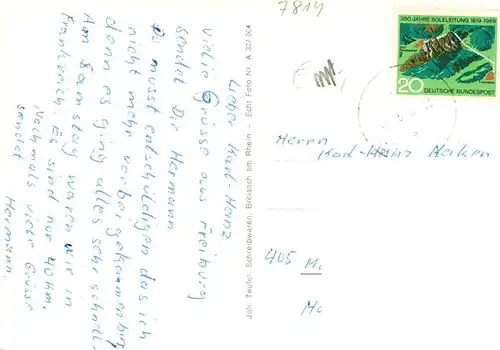 Lieber Karl-Heinz
Viele Grüsse aus Freiburg
sendet Dir Hermann
Du musst entschuldigen das ich
nicht mehr vorbei gekommen bin,
denn es ging alles sehr schnell.
Am Samstag waren wir in
Frankreich. Es sind nur 40 km.
Nochmals viele Grüsse
sendet
Hermann.
Joh. Teufel, Schreibwaren, Breisach am Rhein - Echt Foto Nr. A 327 004
7814
350 JAHRE SOLELEITUNG 1619-1969
20
DEUTSCHE BUNDESPOST
Herrn
Karl-Heinz
405 M.